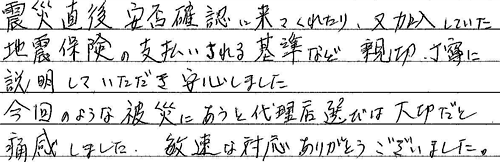 震災直後 安否確認に来てくれたり、又加入していた
地震保険の支払いされる基準など 親切、丁寧に
説明していただき安心しました
今回のような被災にあうと代理店選びは大切だと
痛感しました. 敏速な対応ありがとうございました。